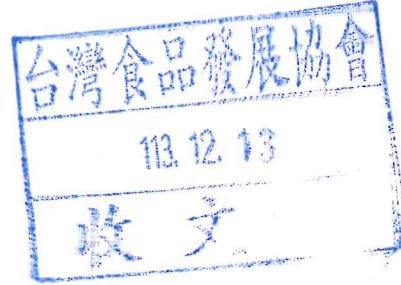 台灣食品發展協會
113. 12. 13
收文